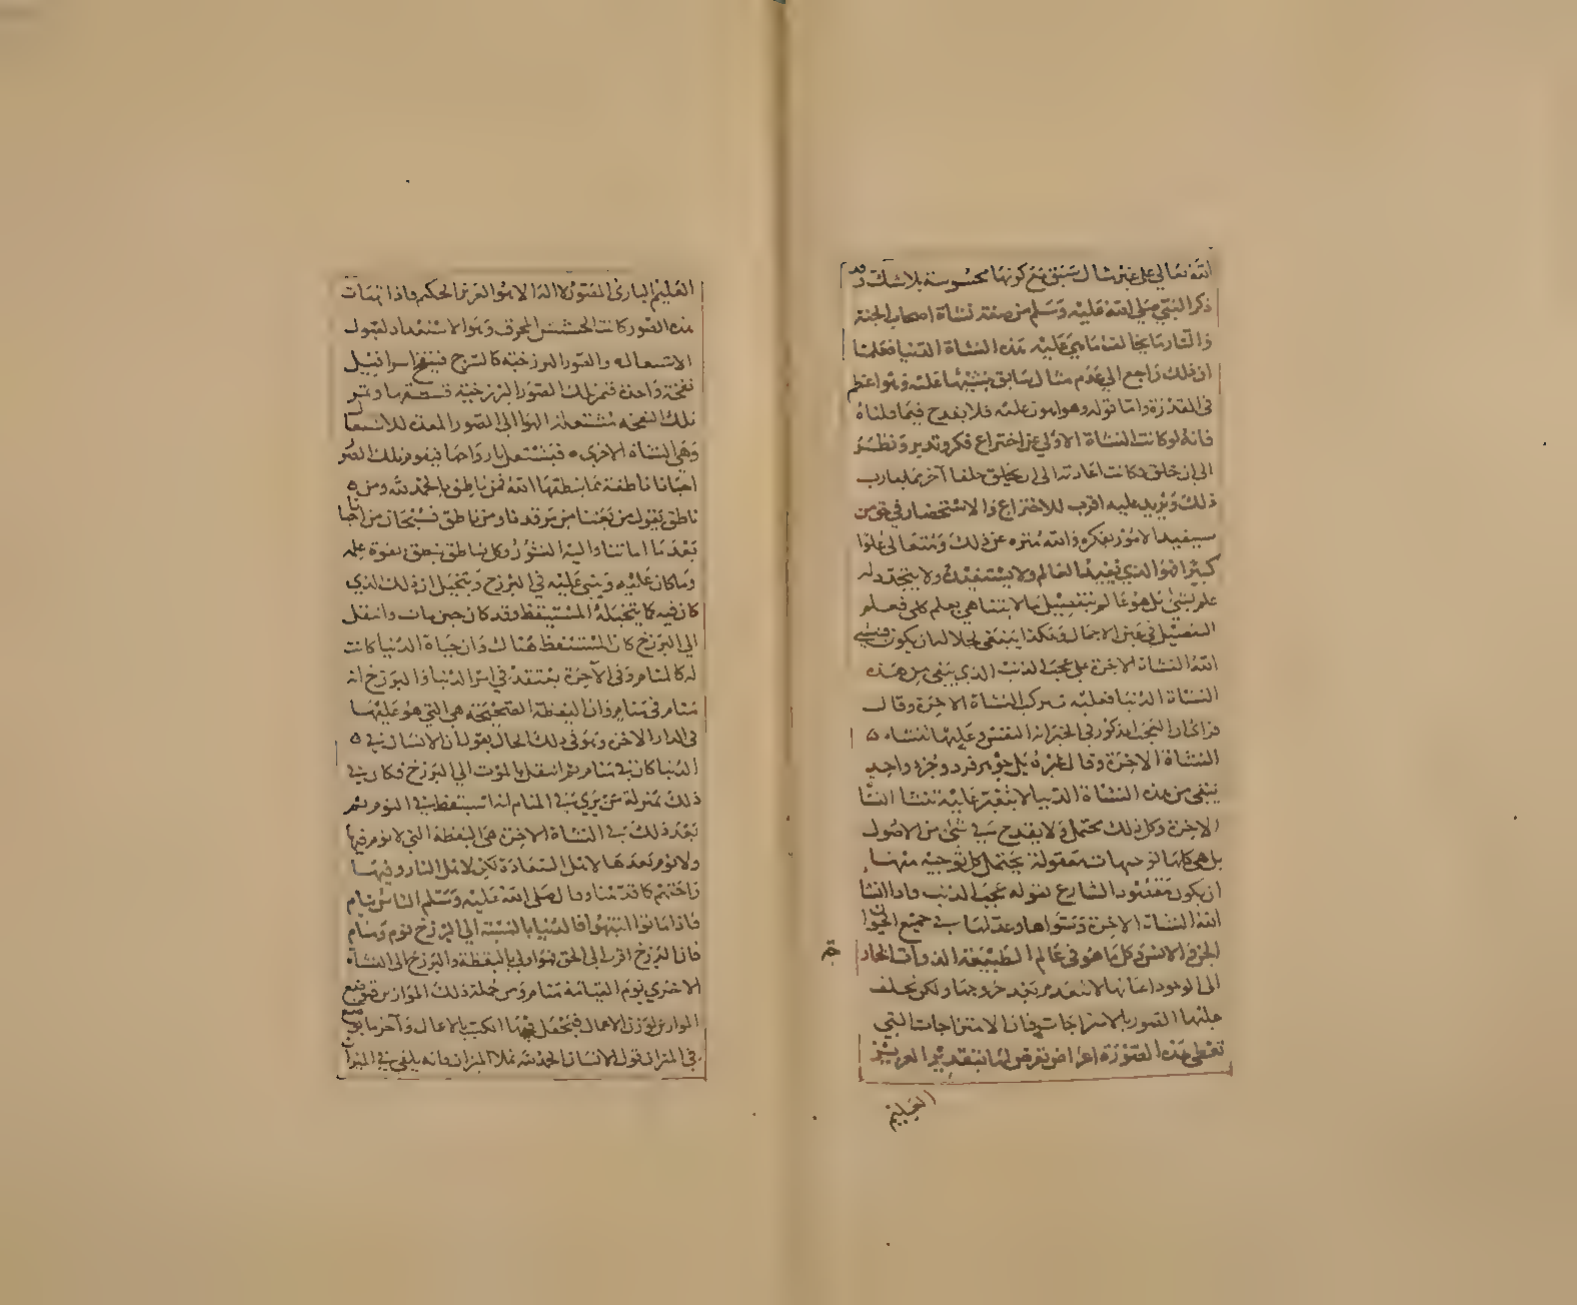 الله تعالى على غير مثال سبق مع كونها محسوسة بلا شك وقد
ذكر النبي صلى الله عليه وسلم من صفة نشأة اصحاب الجنة
والنار ما يخالف ما هي عليه هذه النشاة الدنيا فعلمنا
ان ذلك راجع الى عدم مثال سابق ينشئها عليه وهو اعظم
في القدرة واما قوله وهو اهون عليه فلا يقدح فيما قلناه
فانه لو كانت النشاة الاولى عن اختراع فكر وتدبر ونظر
الى ان خلق فكانت اعادته الى ان يخلق خلقا آخر مما يقارب
ذلك ويزيد عليه اقرب للاختراع والاستحضار في حق من
يستفيد الامور بفكره والله منزه عن ذلك ومتعالى علوا
كبيرا فهو الذي يفيد العالم ولا يستفيد ولا يتجدد له
علم بشئ بل هو عالم بتفصيل ما لا يتناهى بعلم كلي فعلم
التفصيل في عين الاجمال وهكذا ينبغي لجلاله ان يكون فينشئ
الله النشاة الاخرة على عجب الذنب الذي يبقى من هذه
النشاة الدنيا فعليه تتركب النشاة الاخرة وقال
المذكور في الخبر انه النفس وعليها تنشاه
النشاة الاخرة وقال غيره بل جوهر فرد وجزء واحد
يبقى من هذه النشاة الدنيا لا يتغير عليه تنشا النشاة
الاخرة وكل ذلك محتمل ولا يقدح في شئ من الاصول
بل هي كلها توجيهات معقولة يحتمل كل توجيه منها
ان يكون مقصود الشارع بقوله عجب الذنب فاذا انشا
الله النشاة الاخرة وسواها وعدلها
الى الوجود اعيانها لا تنعدم بعد خروجها ولكن تختلف
عليها الصور بالامتزاجات فان الامتزاجات التي
تعطى هذه الصورة اعراض تعرض لها بتقدير العزيز
العليم
العليم البارئ المصور لا اله الا هو العزيز الحكيم فاذا تهيات
هذه الصور كانت كالحشيش المحرق وهو الاستعداد لقبول
الاشتعال والصور البرزخية كالسرج فينفخ اسرافيل
نفخة واحدة فتمر تلك الصور البرزخية فتطفئها وتمر
تلك النفخة
وهي النشاة الاخرى فتشتعل بارواحها فيقوم تلك الصور
احيانا ناطقة بما ينطقها الله فمن ناطق بالحمد لله ومن
ناطق يقول من بعثنا من مرقدنا ومن ناطق سبحان من احيانا
بعد ما اماتنا واليه النشور وكل ناطق ينطق بقوة علمه
وما كان عليه وينسى عليه في البرزخ ويتخيل ان ذلك الذي
كان فيه كما يتخيله المستيقظ وقد كان حين مات وانتقل
الى البرزخ كان المستيقظ هناك وان حياة الدنيا كانت
له كالمنام وفي الآخرة يعتقد في امر الدنيا والبرزخ انه
منام في منام وان اليقظة الصحيحة هي التي هو عليها
في الدار الاخرة وهو في ذلك الحال يقول ان الانسان في
الدنيا كان في منام ثم انتقل بالموت الى البرزخ فكان في
ذلك بمنزلة من يرى في المنام انه استيقظ في النوم ثم
بعد ذلك في النشاة الاخرة هي اليقظة التي لا نوم فيها
ولا نوم بعدها لاهل السعادة لكن لاهل النار وفيها
راحتهم كما قدمنا وقال صلى الله عليه وسلم الناس نيام
فاذا ماتوا انتبهوا فالدنيا بالنسبة الى البرزخ نوم ومنام
فان البرزخ اقرب الى الحق فهو اولى باليقظة والبرزخ الى النشاة
الاخرى يوم القيامة منام ومن جملة ذلك الموازين
الموازين لوزن الاعمال فيجعل فيها الكتب بالاعمال وآخر ما يوضع
في الميزان قول الانسان الحمد لله تملا الميزان فانه يلقى في الميزان